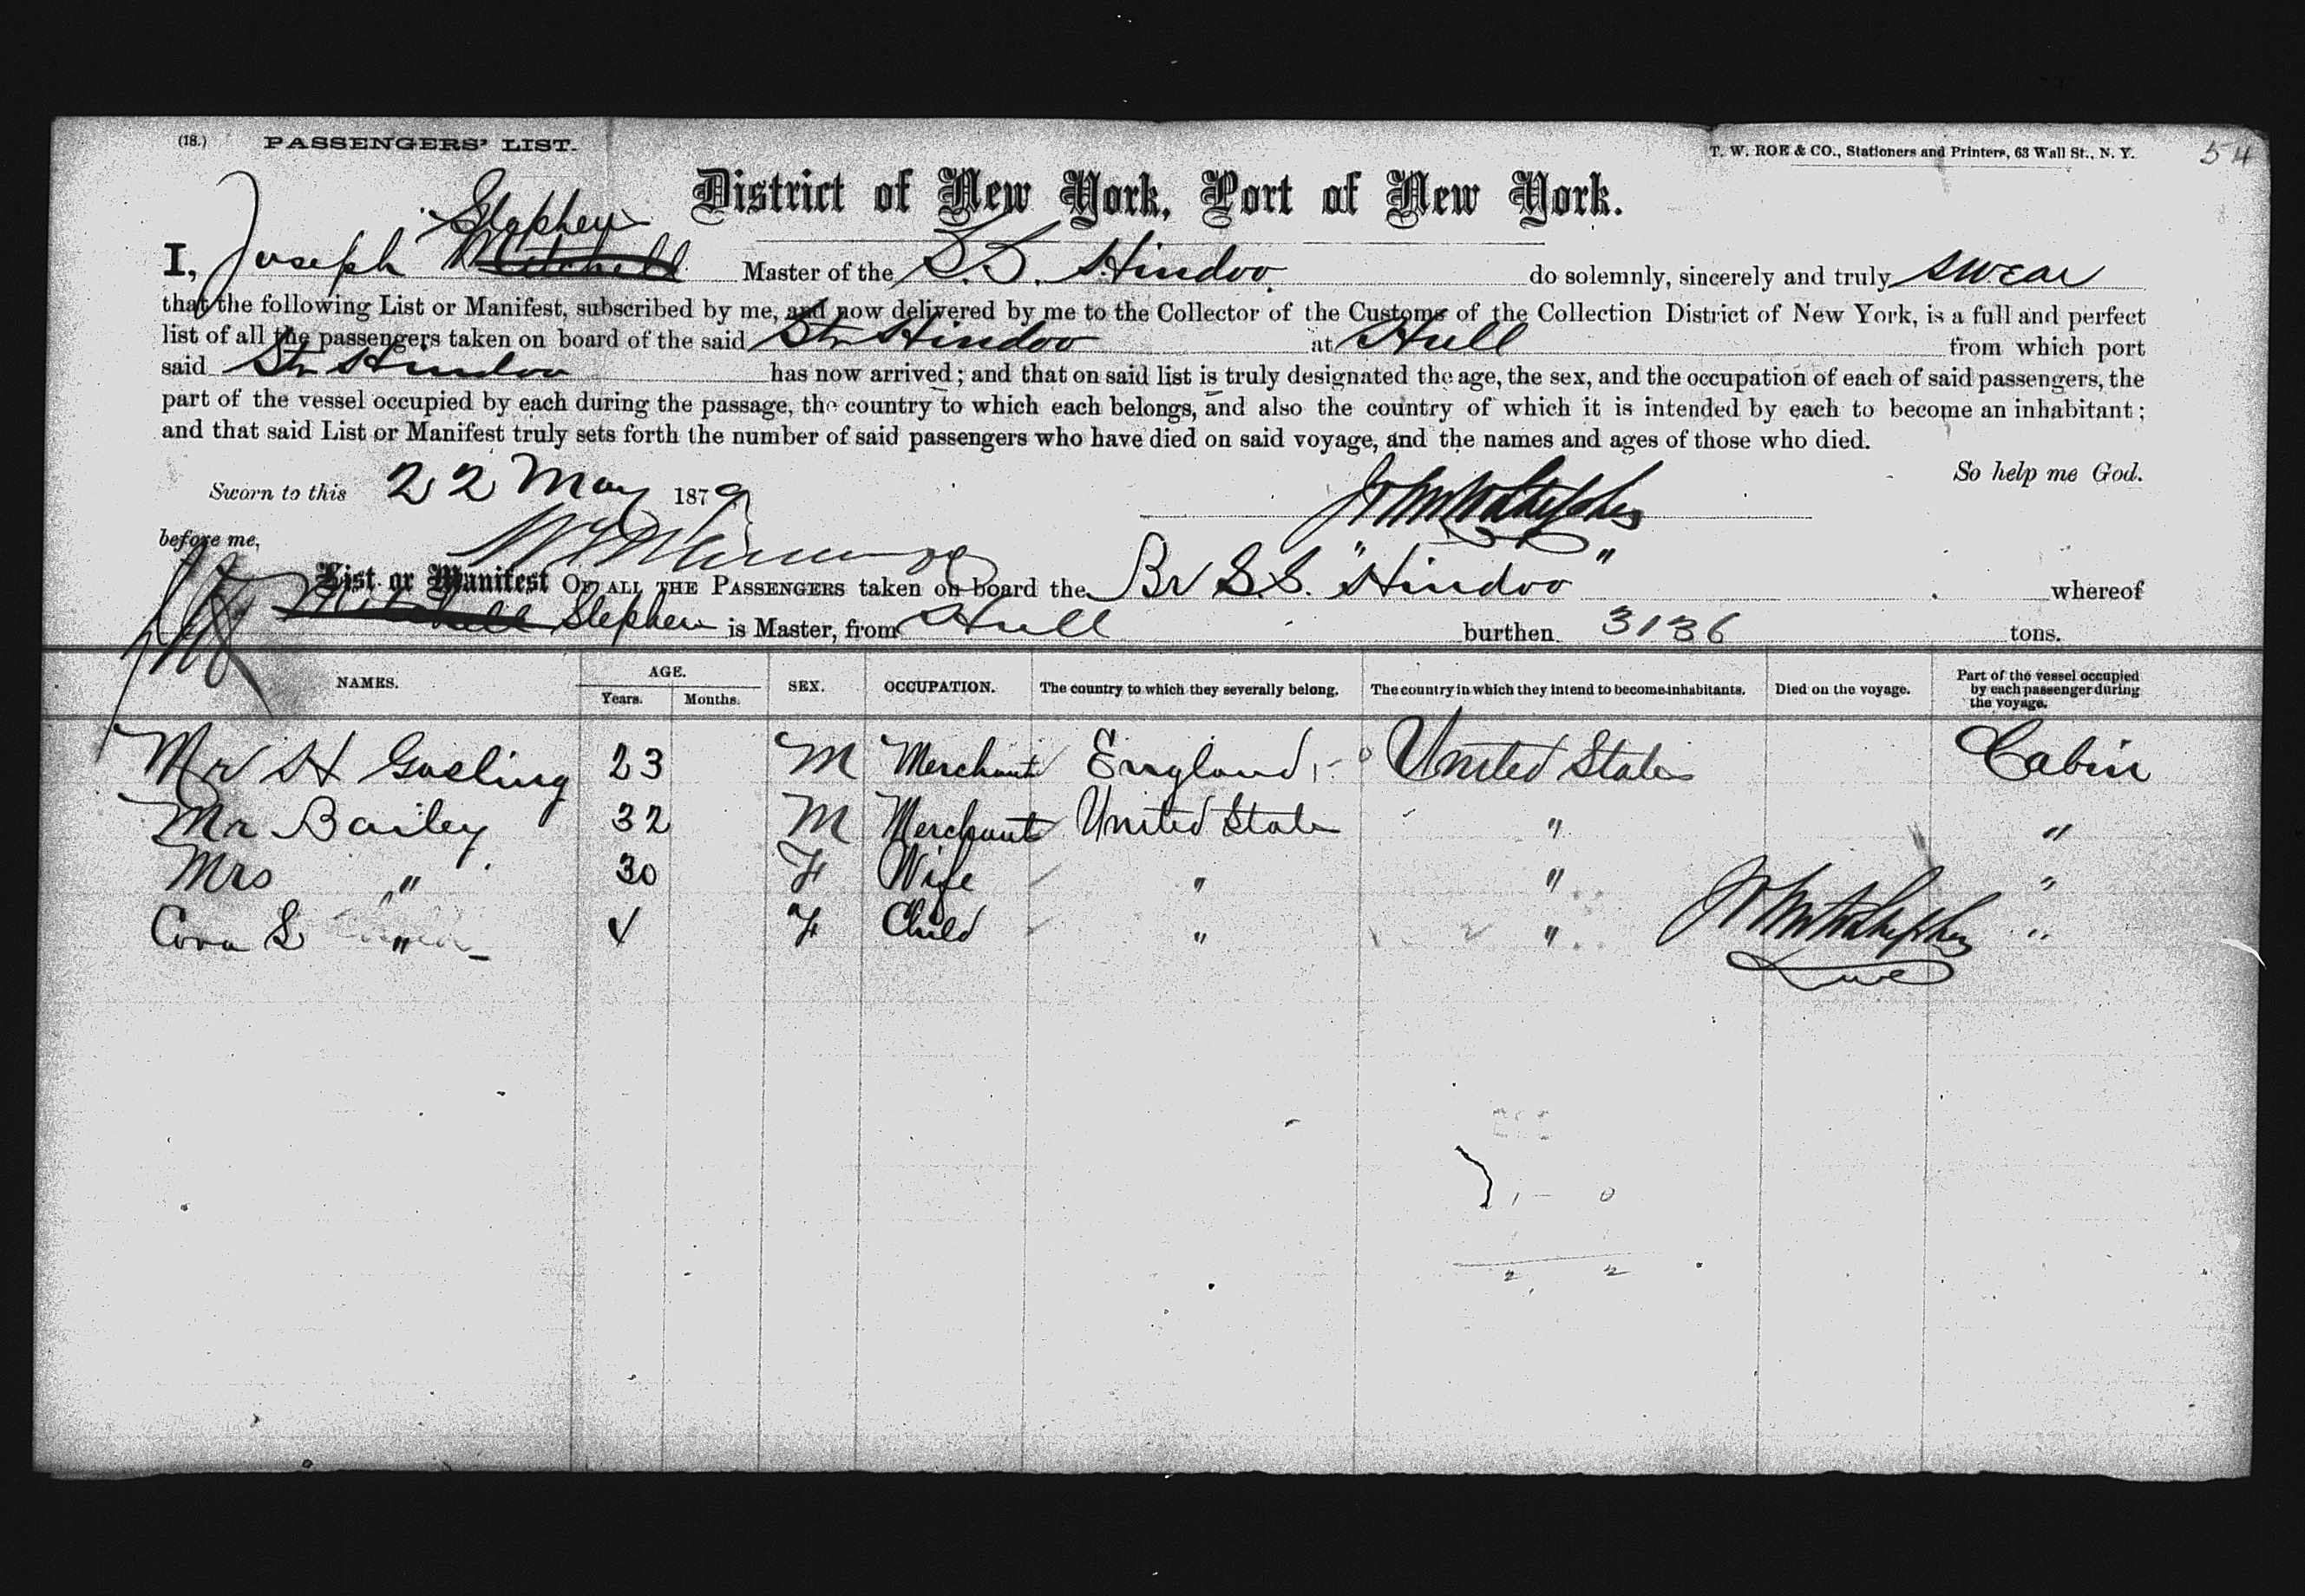 (18.) PASSENGERS' LIST. T. W. ROE & CO., Stationers and Printers, 63 Wall St., N. Y. 54
District of New York, Port of New York.
Stephen
I, Joseph Mitchell Master of the S.S. Hindoo. do solemnly, sincerely and truly swear
that the following List or Manifest, subscribed by me, and now delivered by me to the Collector of the Customs of the Collection District of New York, is a full and perfect
list of all the passengers taken on board of the said Str Hindoo at Hull from which port
said Str Hindoo has now arrived; and that on said list is truly designated the age, the sex, and the occupation of each of said passengers, the
part of the vessel occupied by each during the passage, the country to which each belongs, and also the country of which it is intended by each to become an inhabitant;
and that said List or Manifest truly sets forth the number of said passengers who have died on said voyage, and the names and ages of those who died.
So help me God.
Sworn to this 22 May 1879
before me,
List or Manifest OF ALL THE PASSENGERS taken on board the Br S.S. "Hindoo" whereof
Mitchell Stephen is Master, from Hull burthen 3136 tons.
NAMES. AGE. Years. Months. SEX. OCCUPATION. The country to which they severally belong. The country in which they intend to become inhabitants. Died on the voyage. Part of the vessel occupied by each passenger during the voyage.
Mr H Gosling 23 M Merchant England United States Cabin
Mr Bailey 32 M Merchant United States " "
Mrs " 30 F Wife " " "
Cora L " 4 F Child " " "